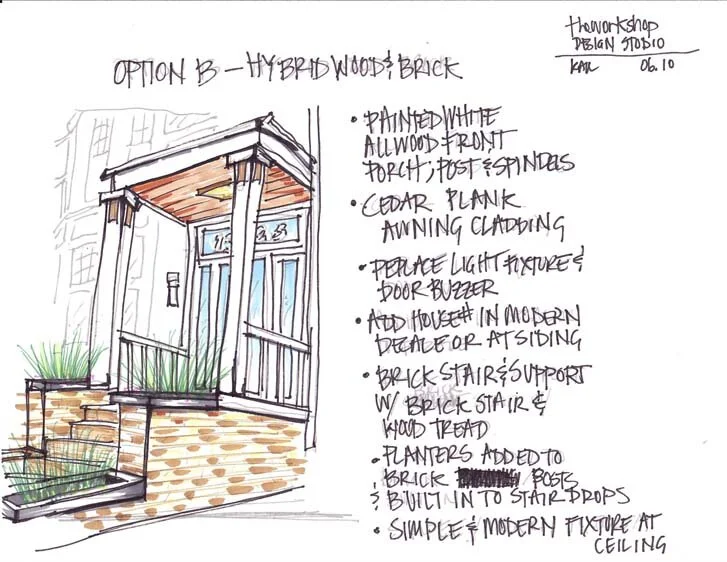 theworkshop
DESIGN STUDIO
06.10
OPTION B – HYBRID WOOD & BRICK
• PAINTED WHITE
ALL WOOD FRONT
PORCH; POST & SPINDELS
• CEDAR PLANK
AWNING CLADDING
• REPLACE LIGHT FIXTURE &
DOOR BUZZER
• ADD HOUSE # IN MODERN
DECALE OR AT SIDING
• BRICK STAIR & SUPPORT
W/ BRICK STAIR &
WOOD TREAD
• PLANTERS ADDED TO
BRICK POSTS
& BUILT IN TO STAIR DROPS
• SIMPLE & MODERN FIXTURE AT
CEILING